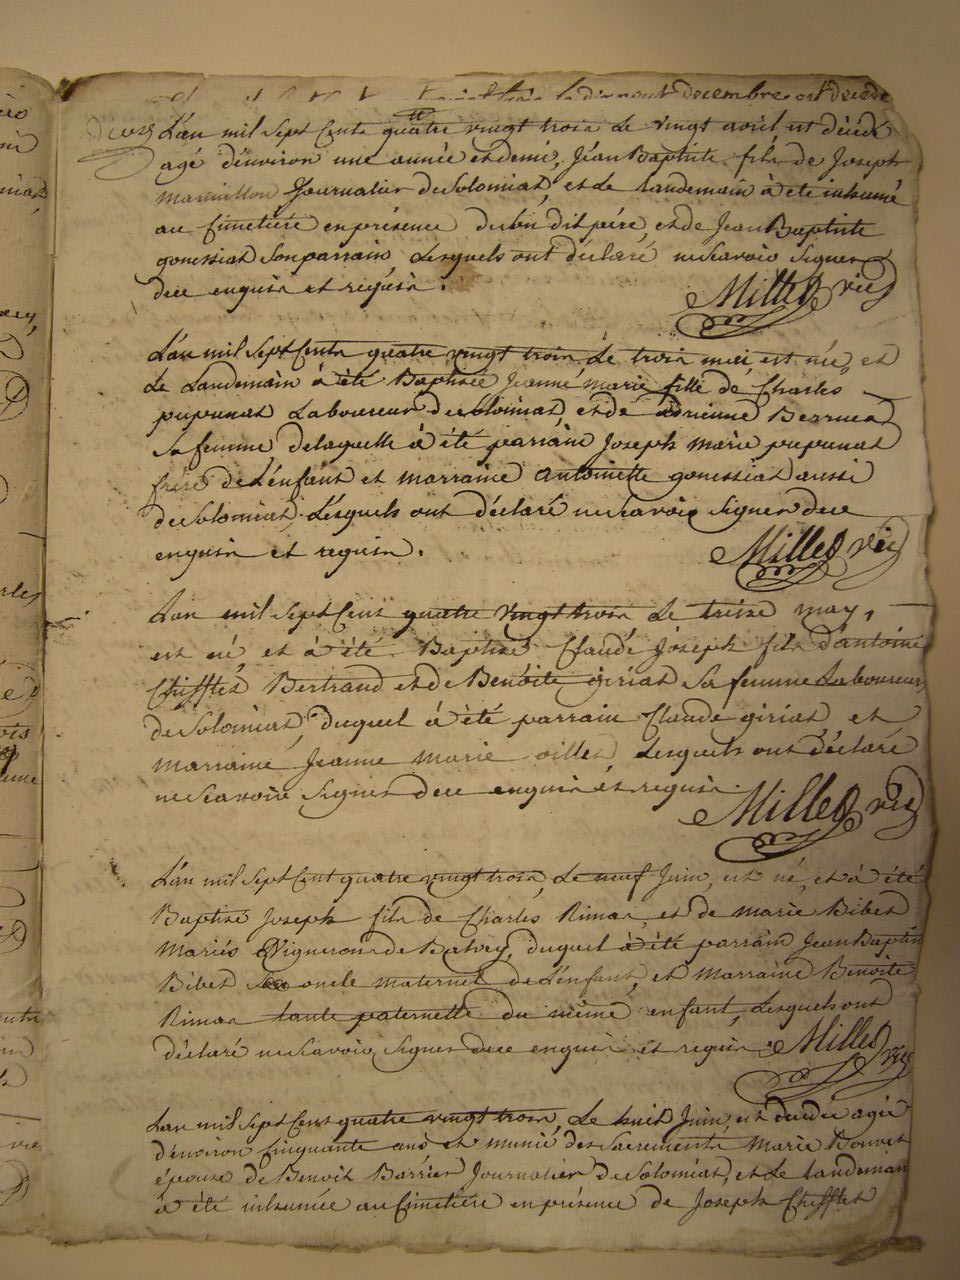 decembre est decede
L'an mil sept Cents quatre vingt trois Le vingt avril est décédé
agé d'environ une année et demi, Jean Baptiste fils de Joseph
Journalier de Solomiat, et Le Landemain à été inhumé
au Cimetiére en présence du sus dit pére, et de Jean Baptiste
gonessiat son parrain, Lesquels ont déclaré ne scavoir signer
de ce enquis et requis. Millet vic
L'an mil sept Cents quatre vingt trois Le trois mai est née, et
Le Landemain à été Baptisée Jeanne Marie fille de Charles
pupunat Laboureur de Solomiat, et de adrienne
sa femme de laquelle à été parrain Joseph Marie pupunat
frere de L'enfant et marraine antoinette gonessiat aussi
de Solomiat. Lesquels ont déclaré ne scavoir signer de ce
enquis et requis. Millet vic
L'an mil sept Cent quatre vingt trois Le treize may,
est né, et à été Baptisé Claude Joseph fils d'antoine
Chifflet Bertrand et de Benoite giriat sa femme Laboureur
de Solomiat, duquel à été parrain Claude giriat et
marraine Jeanne Marie oillet Lesquels ont déclaré
ne scavoir signer de ce enquis et requis. Millet vic
L'an mil sept Cent quatre vingt trois, Le neuf Juin, est né, et à été
Baptisé Joseph fils de Charles Rimas et de marie Bibet
mariés Vignerons de duquel à été parrain Jean Baptiste
Bibet son oncle maternel de L'enfant, et Marraine Benoite
Rimas tante paternelle du même enfant, Lesquels ont
déclaré ne scavoir signer de ce enquis et requis Millet vic
L'an mil sept Cent quatre vingt trois, Le huit Juin, est décédée agée
d'environ Cinquante ans et munie des sacrements Marie Bouvet
épouse de Benoit Barrier Journalier de Solomiat, et Le Landemain
à été inhumée au Cimetiére en présence de Joseph Chifflet